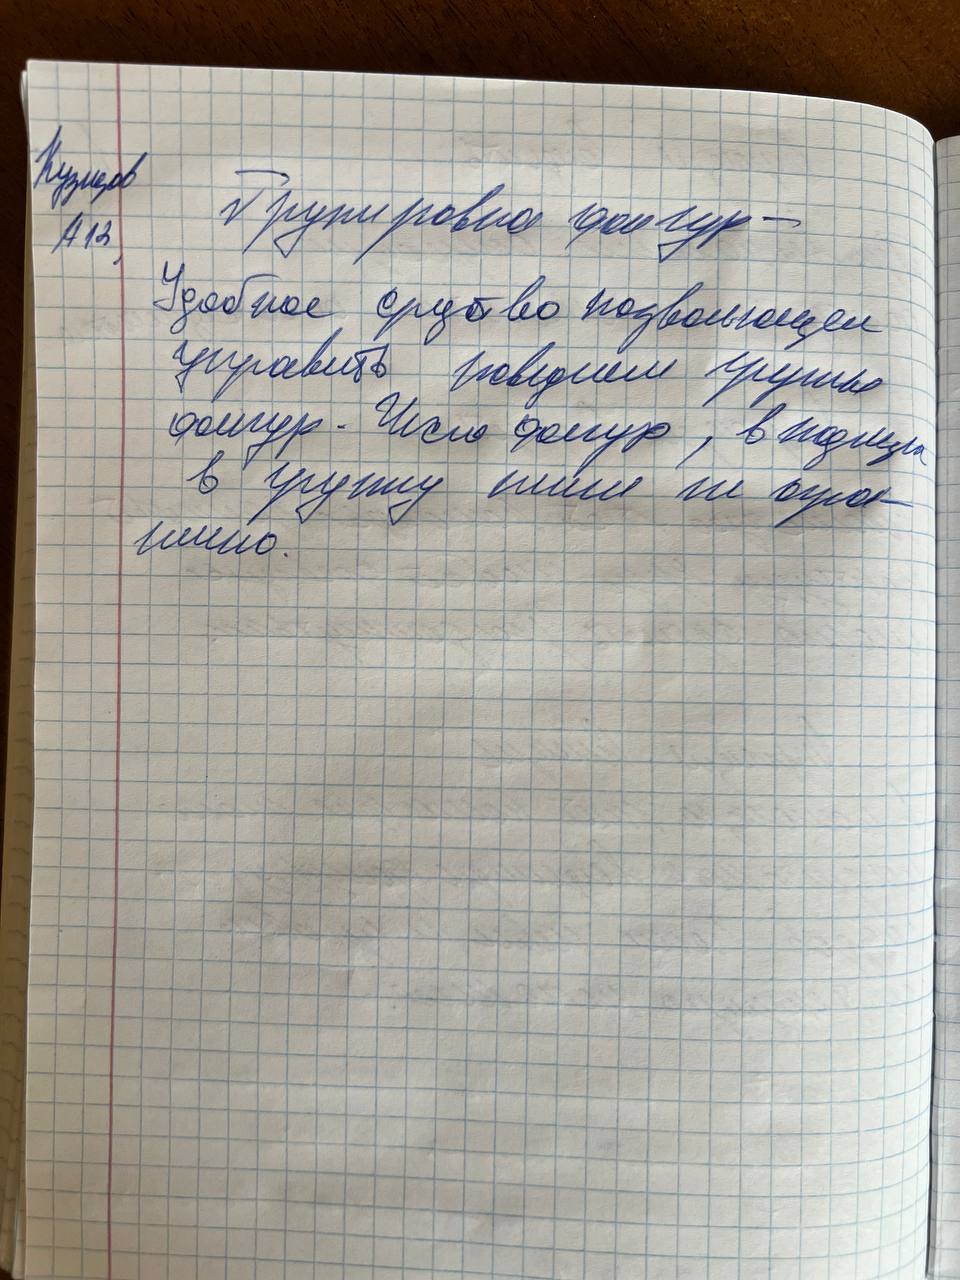 Кузнецов
А13,
Групировка фигур-
Удобное средство позволяющее
управлять поведением группы
фигур. Число фигур, входящих
в группу никем не огра-
ничено.